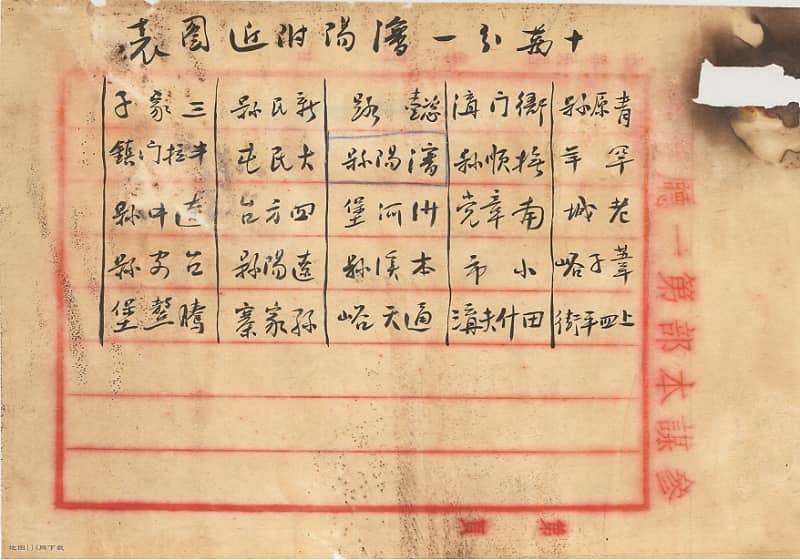 十萬分一瀋陽附近圖表
青原縣 衙门溝 懿路 新民縣 三家子
罕羊 撫順縣 瀋陽縣 大民屯 半拉门鎮
老城 南章党 洲河堡 四方台 遼中縣
葦子峪 小市 本溪縣 遼陽縣 台安縣
上四平街 田什夫溝 通天峪 孫家寨 騰鰲堡
參謀本部第一廳
第 頁